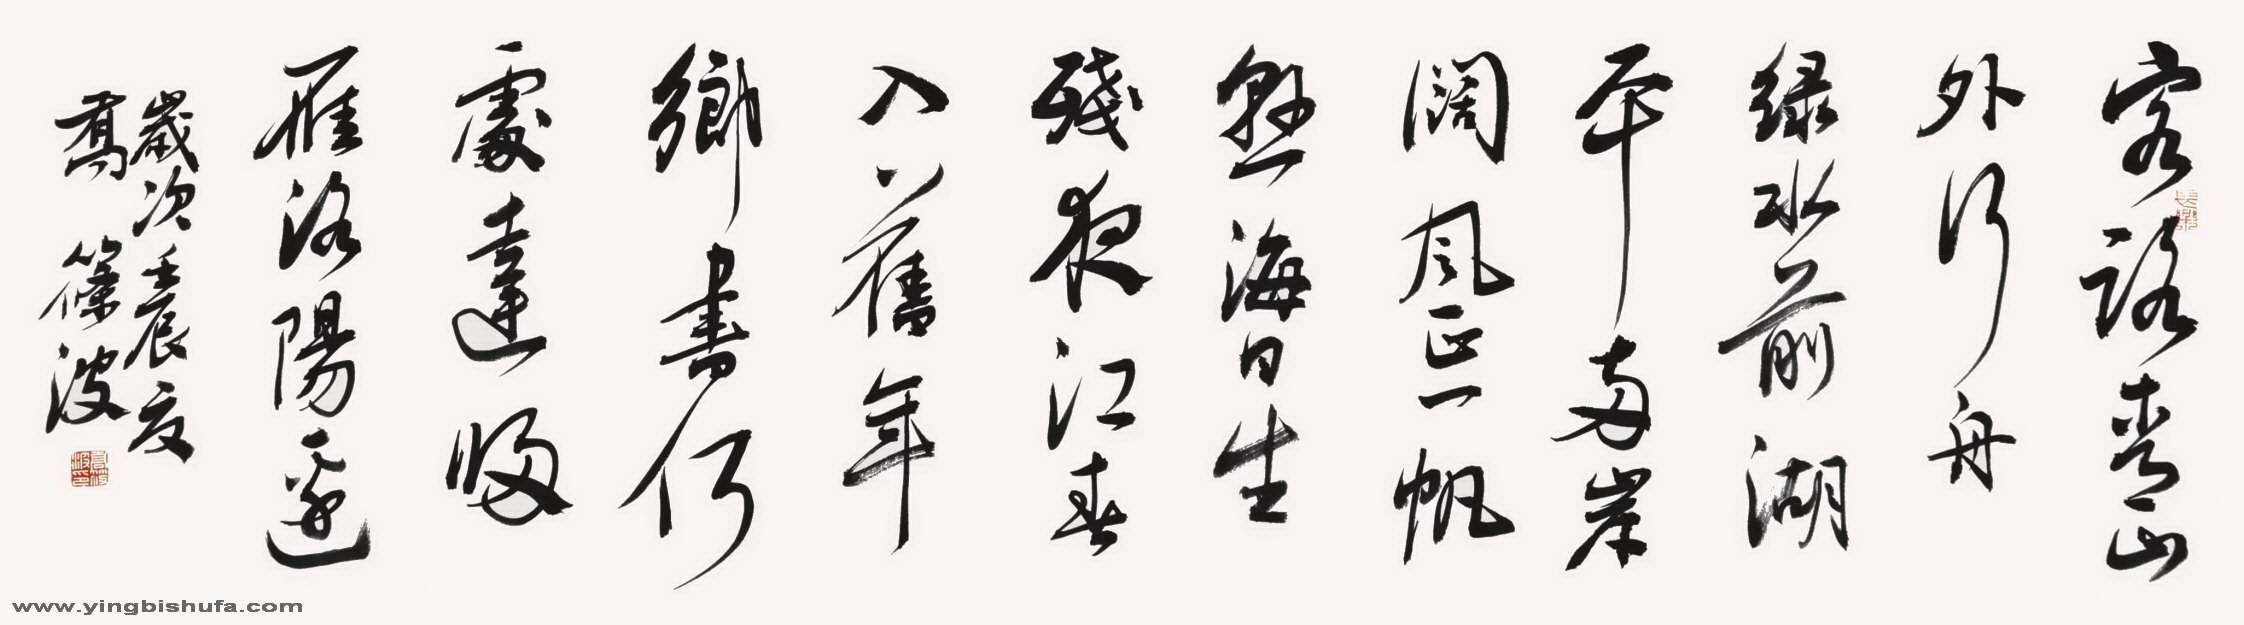 客路青山
外行舟
绿水前湖
平両岸
阔風正一
帆
懸海日生
残夜江春
入舊年
鄉書何
處達歸
雁洛陽邊
歲次壬辰夏
喬篠波
www.yingbishufa.com